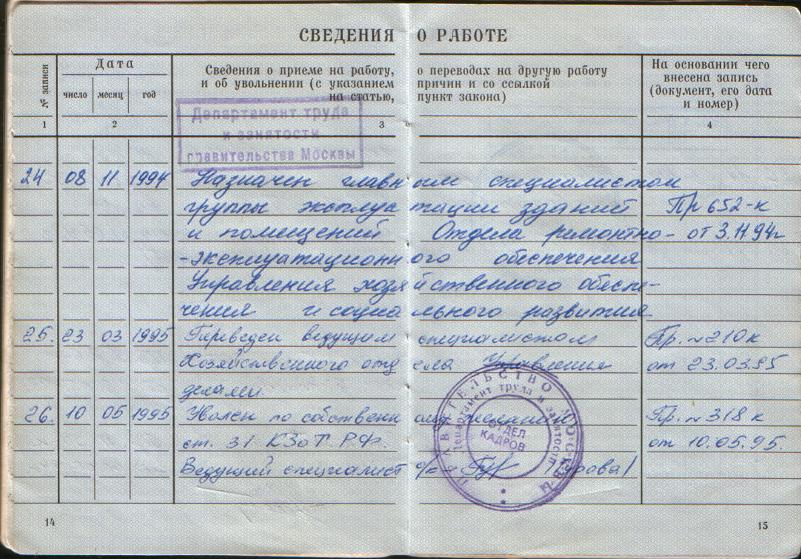 СВЕДЕНИЯ О РАБОТЕ
№ записи
Дата
число месяц год
Сведения о приеме на работу, о переводах на другую работу
и об увольнении (с указанием причин и со ссылкой
на статью, пункт закона)
На основании чего
внесена запись
(документ, его дата
и номер)
1 2 3 4
Департамент труда
и занятости
правительства Москвы
24 08 11 1994 Назначен главным специалистом
группы эксплуатации зданий Пр 652-к
и помещений Отдела ремонтно- от 3.11.94г
-эксплуатационного обеспечения
Управления хозяйственного обеспе-
чения и социального развития
25. 23 03 1995 Переведен ведущим специалистом Пр. № 210 к
Хозяйственного отдела Управления от 23.03.95
делами
26. 10 05 1995 Уволен по собственному желанию Пр. № 318 к
ст. 31 КЗоТ РФ. от 10.05.95.
Ведущий специалист о/к
ПРАВИТЕЛЬСТВО МОСКВЫ
Департамент труда и занятости
ОТДЕЛ
КАДРОВ
14 15